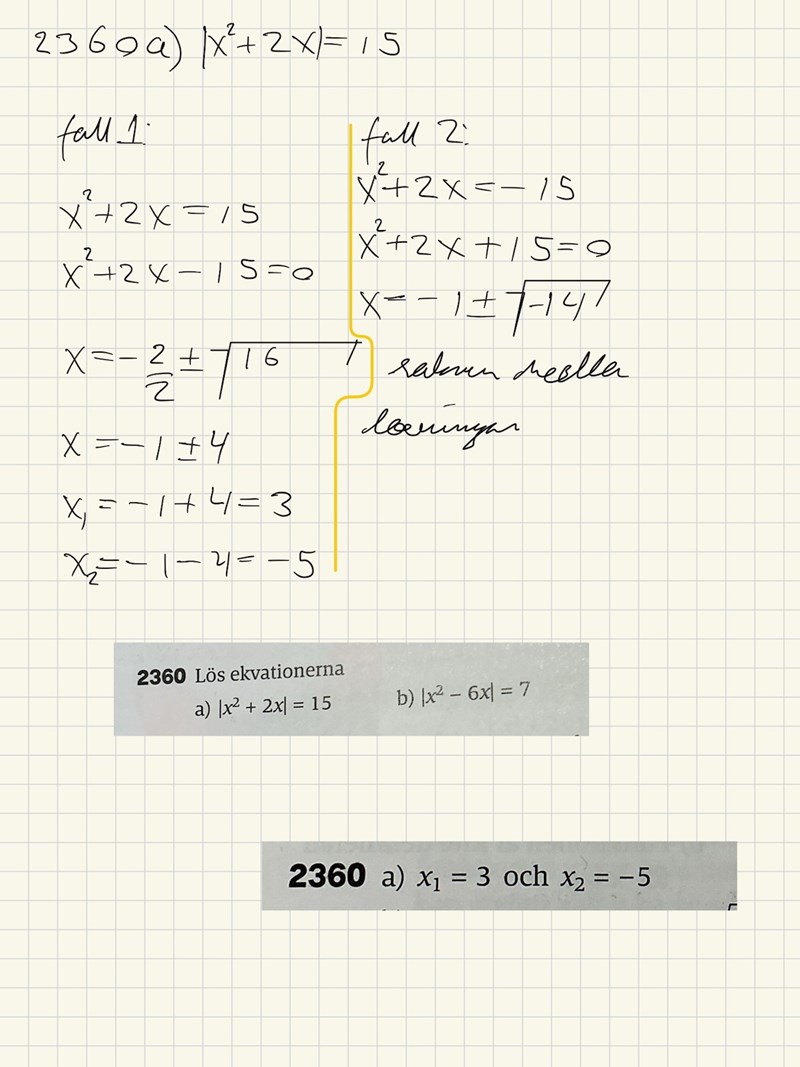 2360a) |x²+2x|=15
fall 1:
x²+2x=15
x²+2x-15=0
x=-2/2±√16
x=-1±4
x₁=-1+4=3
x₂=-1-4=-5
fall 2:
x²+2x=-15
x²+2x+15=0
x=-1±√-14
saknar reella
lösningar
2360 Lös ekvationerna
a) |x² + 2x| = 15 b) |x² – 6x| = 7
2360 a) x₁ = 3 och x₂ = −5